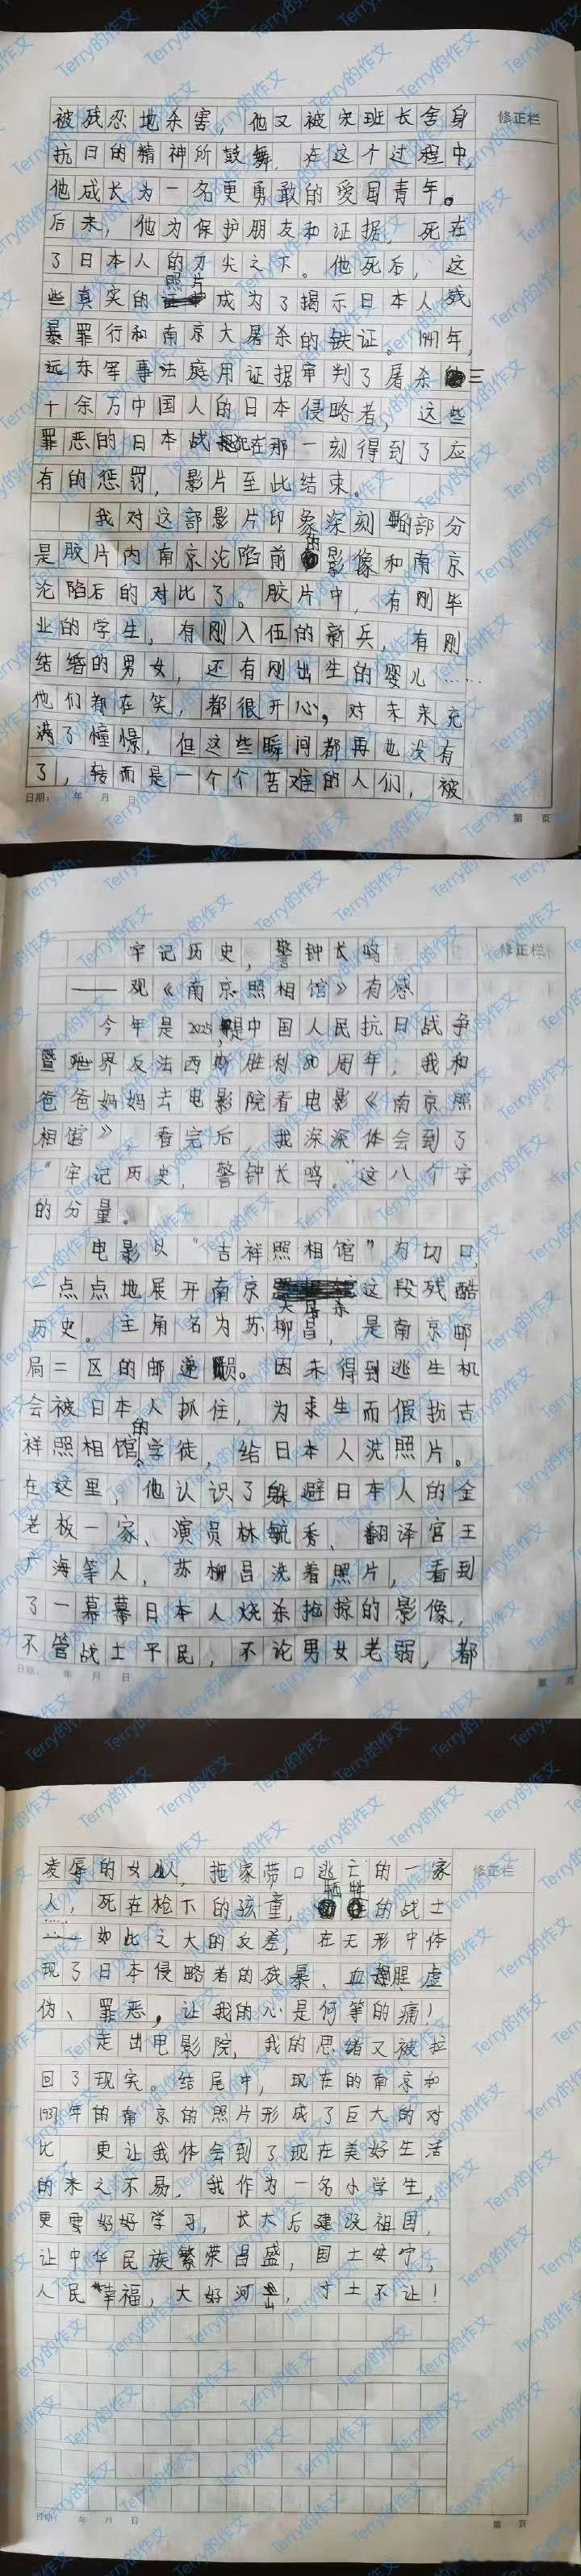 被残忍地杀害，他又被宋班长舍身
抗日的精神所鼓舞，在这个过程中，
他成长为一名更勇敢的爱国青年。
后来，他为保护朋友和证据，死在
了日本人的刀尖之下。他死后，这
照片
些真实的成为了揭示日本人残
暴罪行和南京大屠杀的铁证。1947年，
远东军事法庭用证据审判了屠杀三
十余万中国人的日本侵略者，这些
罪恶的日本战犯在那一刻得到了应
有的惩罚，影片至此结束。
我对这部影片印象深刻的部分
是胶片内南京沦陷前的影像和南京
沦陷后的对比了。胶片中，有刚毕
业的学生，有刚入伍的新兵，有刚
结婚的男女，还有刚出生的婴儿……
他们都在笑，都很开心，对未来充
满了憧憬，但这些瞬间都再也没有
了，转而是一个个苦难的人们，被
日期： 年 月 日
第 页
修正栏
牢记历史，警钟长鸣
——观《南京照相馆》有感
今年是2025，是中国人民抗日战争
暨世界反法西斯胜利80周年，我和
爸爸妈妈去电影院看电影《南京照
相馆》，看完后，我深深体会到了
“牢记历史，警钟长鸣。”这八个字
的分量。
电影以“吉祥照相馆”为切口，
一点点地展开南京大屠杀这段残酷
历史。主角名为苏柳昌，是南京邮
局二区的邮递员。因未得到逃生机
会被日本人抓住，为求生而假扮吉
祥照相馆的学徒，给日本人洗照片。
在这里，他认识了躲避日本人的金
老板一家、演员林毓秀、翻译官王
广海等人，苏柳昌洗着照片，看到
了一幕幕日本人烧杀抢掠的影像，
不管战士平民，不论男女老弱，都
日期： 年 月 日
第 页
修正栏
凌辱的女人，拖家带口逃亡的一家
人，死在枪下的孩童，牺牲的战士
……如此之大的反差，在无形中体
现了日本侵略者的残暴、血腥、虚
伪、罪恶，让我的心是何等的痛！
走出电影院，我的思绪又被拉
回了现实。结尾中，现在的南京和
1937年的南京的照片形成了巨大的对
比，更让我体会到了现在美好生活
的来之不易，我作为一名小学生，
更要好好学习，长大后建设祖国，
让中华民族繁荣昌盛，国土安宁，
人民幸福，大好河山，寸土不让！
日期： 年 月 日
第 页
修正栏
Terry的作文